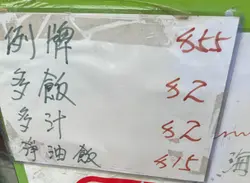 例牌 $55
多飯 $2
多汁 $2
淨油飯 $15
海